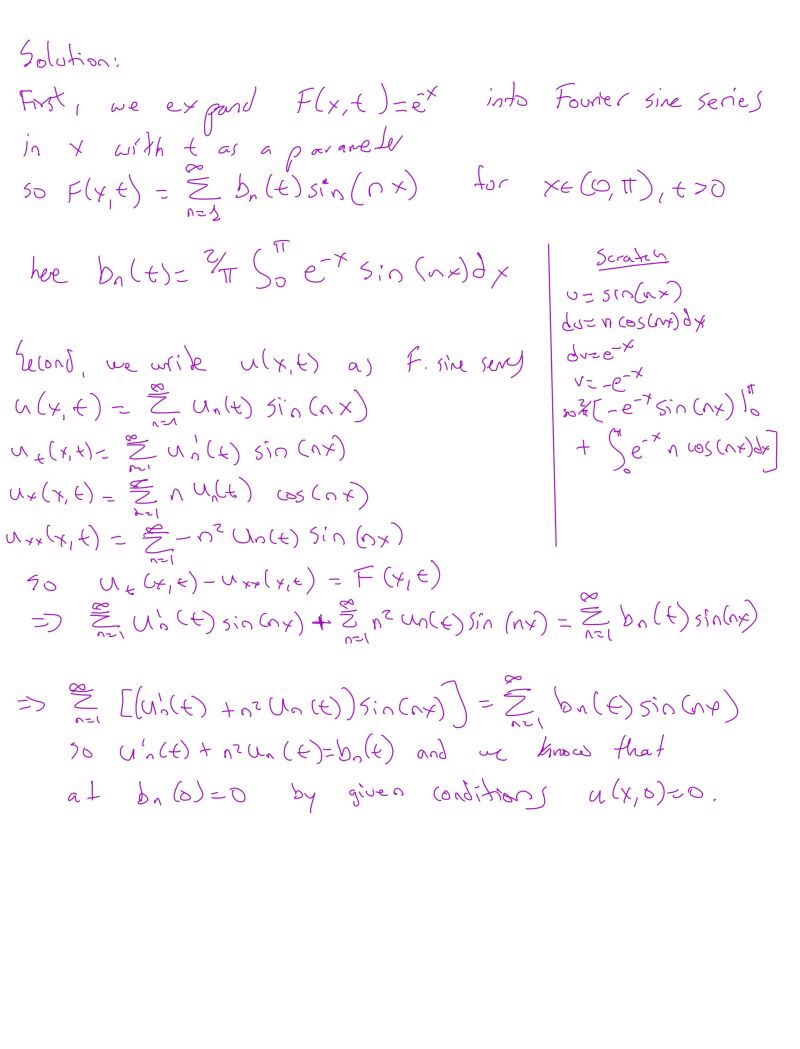 Solution:
First, we expand F(x,t)=e^{-x} into Fourier sine series
in x with t as a parameter
so F(x,t) = \sum_{n=1}^{∞} b_n(t) sin(nx) for x∈(0,π), t>0
here b_n(t) = 2/π ∫_0^π e^{-x} sin(nx)dx
Scratch
u = sin(nx)
du = n cos(nx)dx
dv = e^{-x}
v = -e^{-x}
[-e^{-x} sin(nx)|_0^π
+ ∫_0^π e^{-x} n cos(nx)dx]
Second, we write u(x,t) as F. sine series
u(x,t) = \sum_{n=1}^{∞} u_n(t) sin(nx)
u_t(x,t) = \sum_{n=1}^{∞} u_n'(t) sin(nx)
u_x(x,t) = \sum_{n=1}^{∞} n u_n(t) cos(nx)
u_{xx}(x,t) = \sum_{n=1}^{∞} -n² u_n(t) sin(nx)
so u_t(x,t) - u_{xx}(x,t) = F(x,t)
⇒ \sum_{n=1}^{∞} u_n'(t) sin(nx) + \sum_{n=1}^{∞} n² u_n(t) sin(nx) = \sum_{n=1}^{∞} b_n(t) sin(nx)
⇒ \sum_{n=1}^{∞} [(u_n'(t) + n² u_n(t)) sin(nx)] = \sum_{n=1}^{∞} b_n(t) sin(nx)
so u_n'(t) + n² u_n(t) = b_n(t) and we know that
at b_n(0)=0 by given conditions u(x,0)=0.